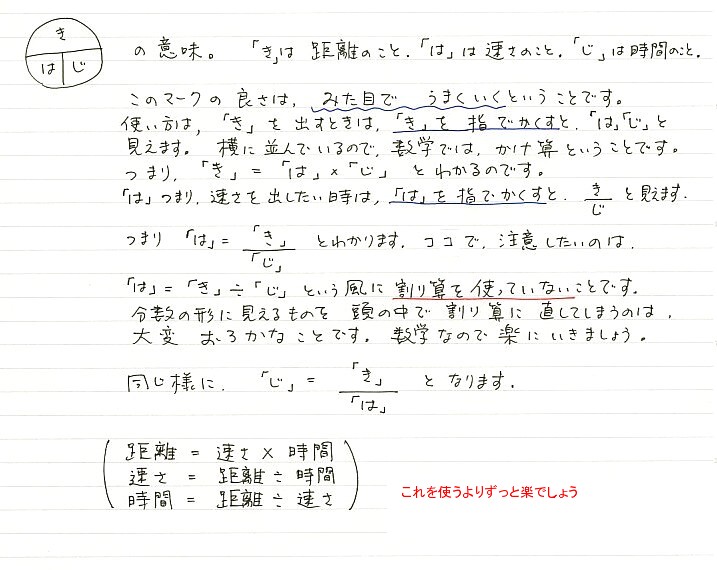 き
は じ
の意味。 「き」は 距離のこと.「は」は 速さのこと.「じ」は時間のこと.
このマークの 良さは, みた目で うまくいくということです。
使い方は, 「き」を 出すときは,「き」を 指でかくすと.「は」「じ」と
見えます。 横に並んでいるので, 数学では, かけ算 ということです。
つまり, 「き」=「は」×「じ」 とわかるのです。
「は」つまり, 速さを出したい時は,「は」を 指でかくすと. き/じ と見えます.
つまり 「は」= 「き」/「じ」 とわかります. ココで, 注意したいのは.
「は」=「き」÷「じ」 という風に 割り算を 使っていないことです。
分数の形に見えるものを 頭の中で 割り算に 直してしまうのは,
大変 おろかなことです。 数学なので 楽にいきましょう。
同じ様に. 「じ」= 「き」/「は」 となります.
距離 = 速さ × 時間
速さ = 距離 ÷ 時間
時間 = 距離 ÷ 速さ
これを使うよりずっと楽でしょう